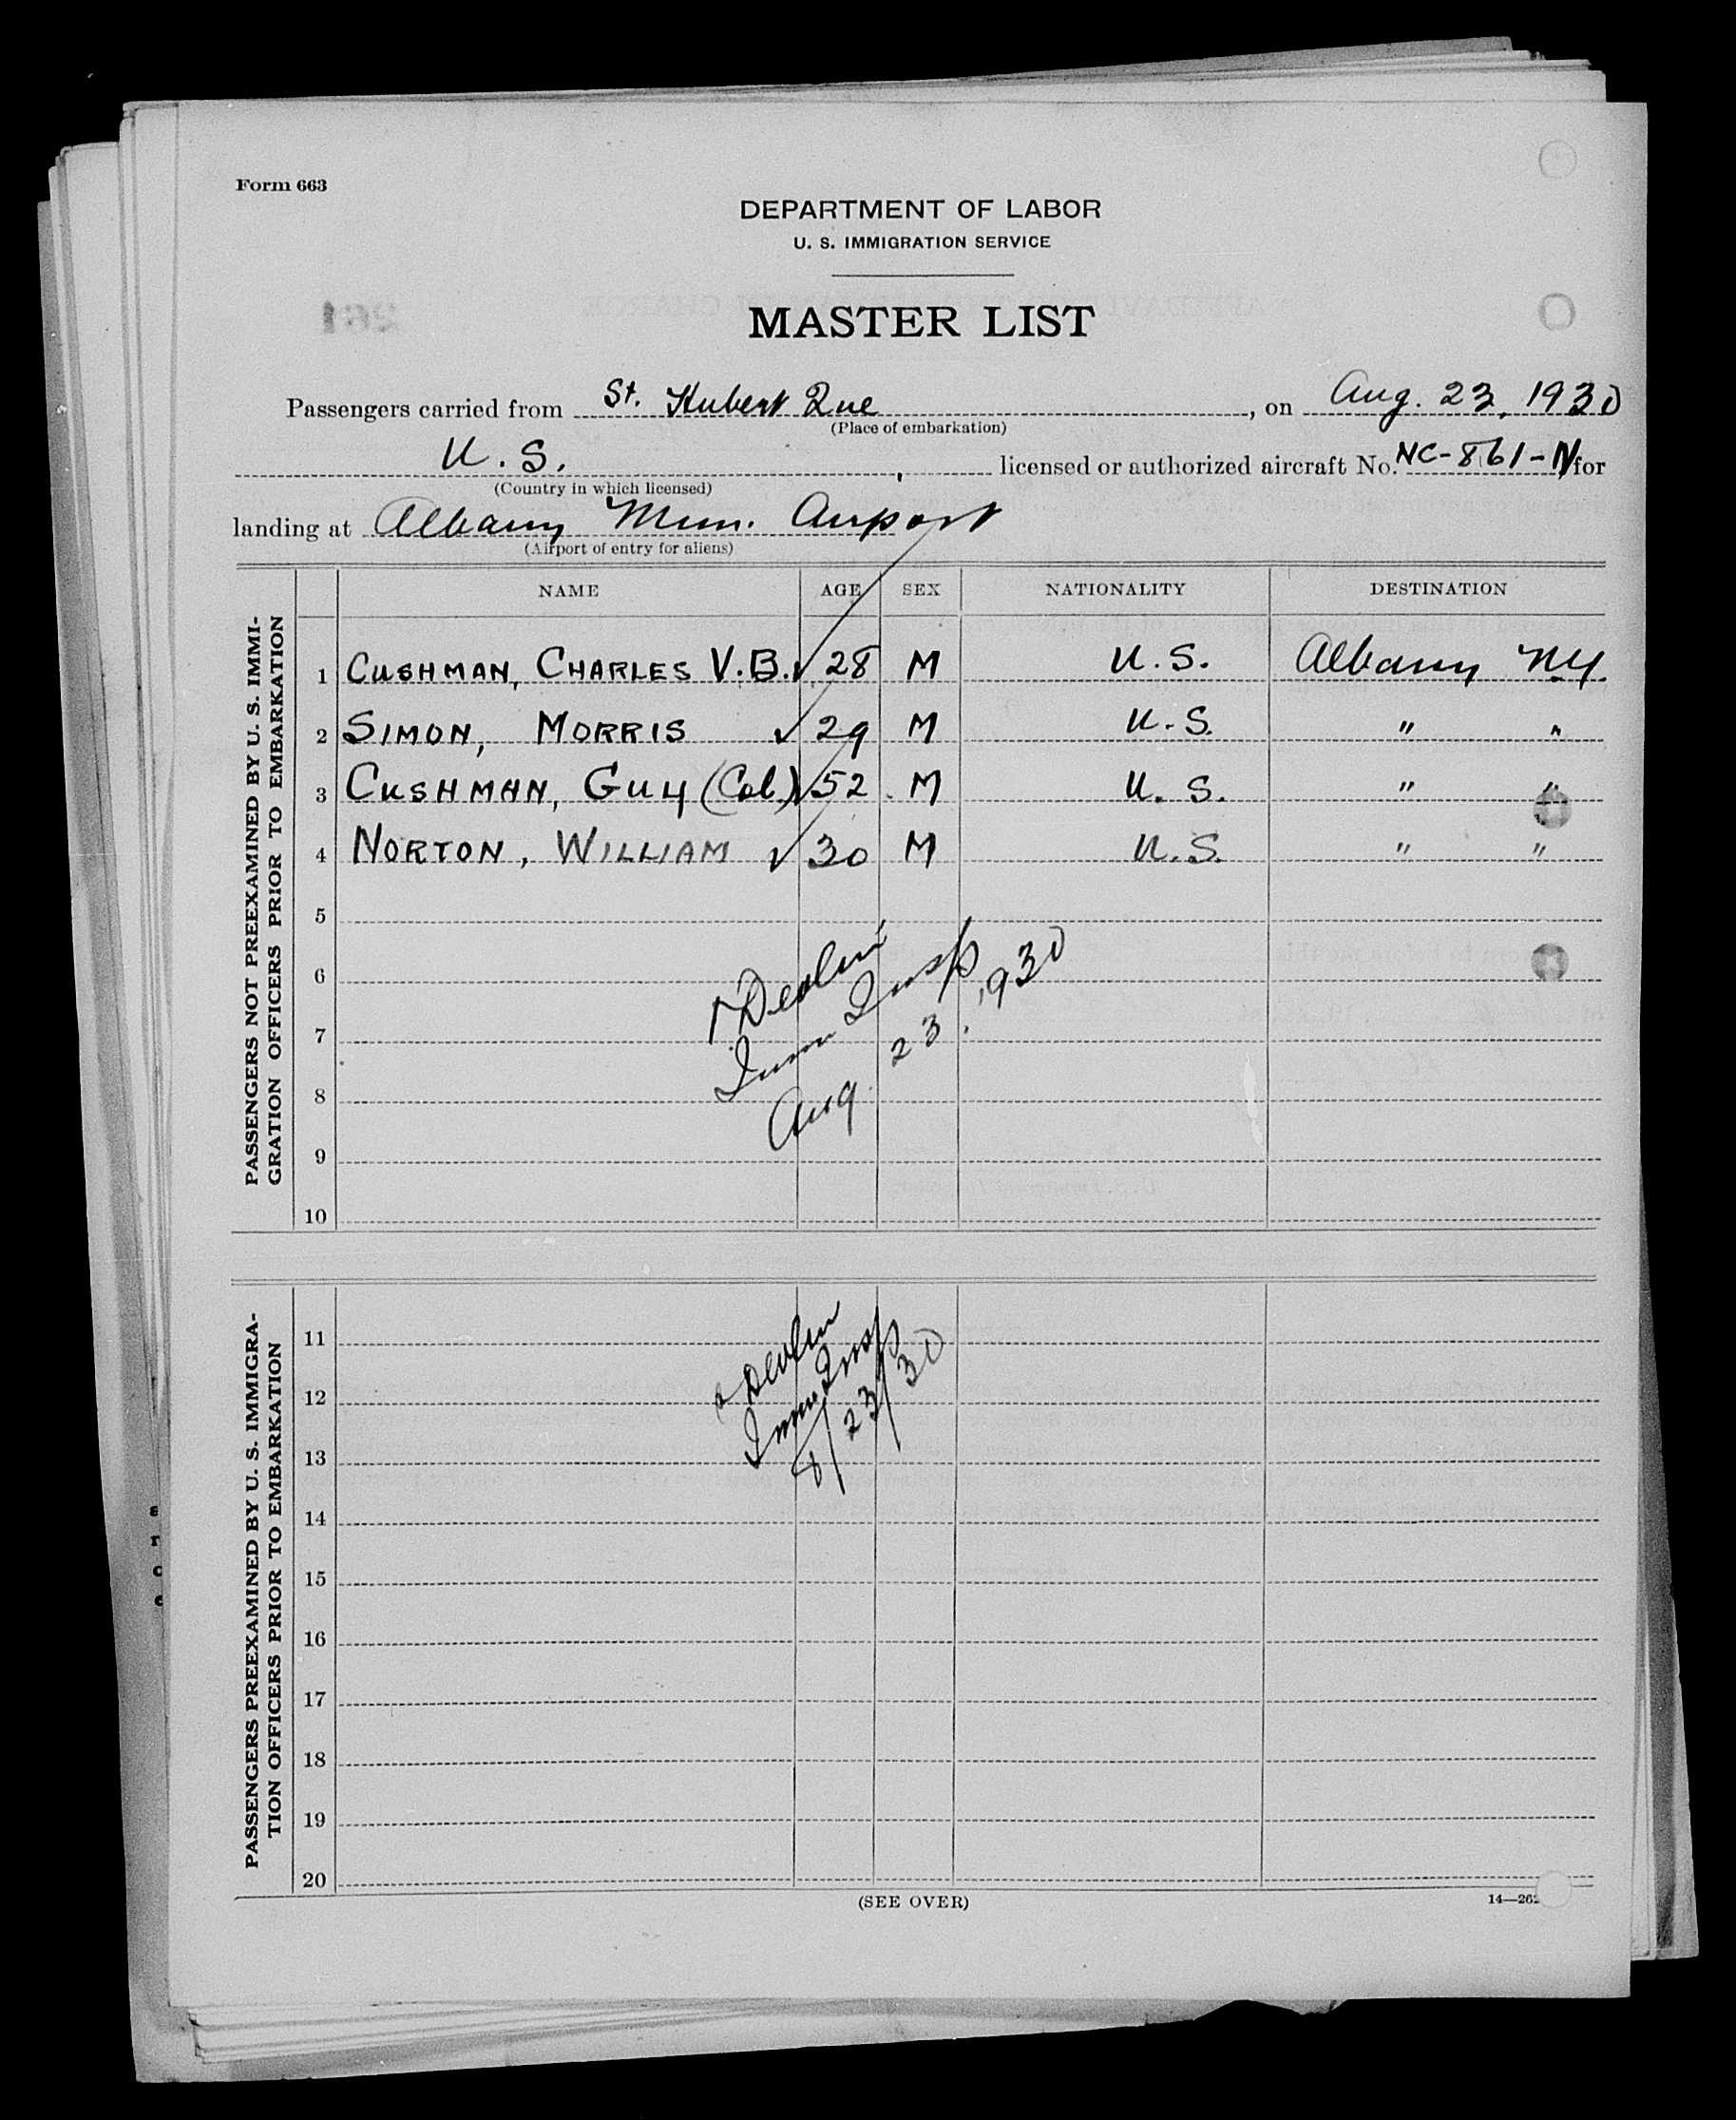 Form 663
DEPARTMENT OF LABOR
U. S. IMMIGRATION SERVICE
MASTER LIST
Passengers carried from St. Hubert Que, on Aug. 23, 1930
(Place of embarkation)
U. S. , licensed or authorized aircraft No. NC-861-N for
(Country in which licensed)
landing at Albany Mun. Airport
(Airport of entry for aliens)
NAME AGE SEX NATIONALITY DESTINATION
PASSENGERS NOT PREEXAMINED BY U. S. IMMI-
GRATION OFFICERS PRIOR TO EMBARKATION
1 CUSHMAN, CHARLES V.B. ✓ 28 M U.S. Albany N.Y.
2 SIMON, MORRIS ✓ 29 M U.S. " "
3 CUSHMAN, GUY (Col.) ✓ 52 M U.S. " "
4 NORTON, WILLIAM ✓ 30 M U.S. " "
5
6
7
8
9
10
Devlin
Imm Insp
Aug. 23, 1930
PASSENGERS PREEXAMINED BY U. S. IMMIGRA-
TION OFFICERS PRIOR TO EMBARKATION
11
12
13
14
15
16
17
18
19
20
Devlin
Imm Insp
8/23/30
(SEE OVER)
14—262